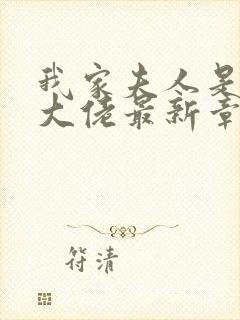 我家夫人是
大佬最新章
符清